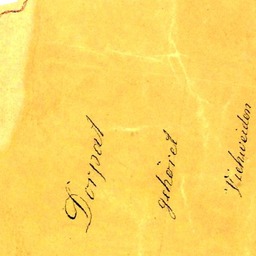 Dorpat
gehöret
Viehweiden